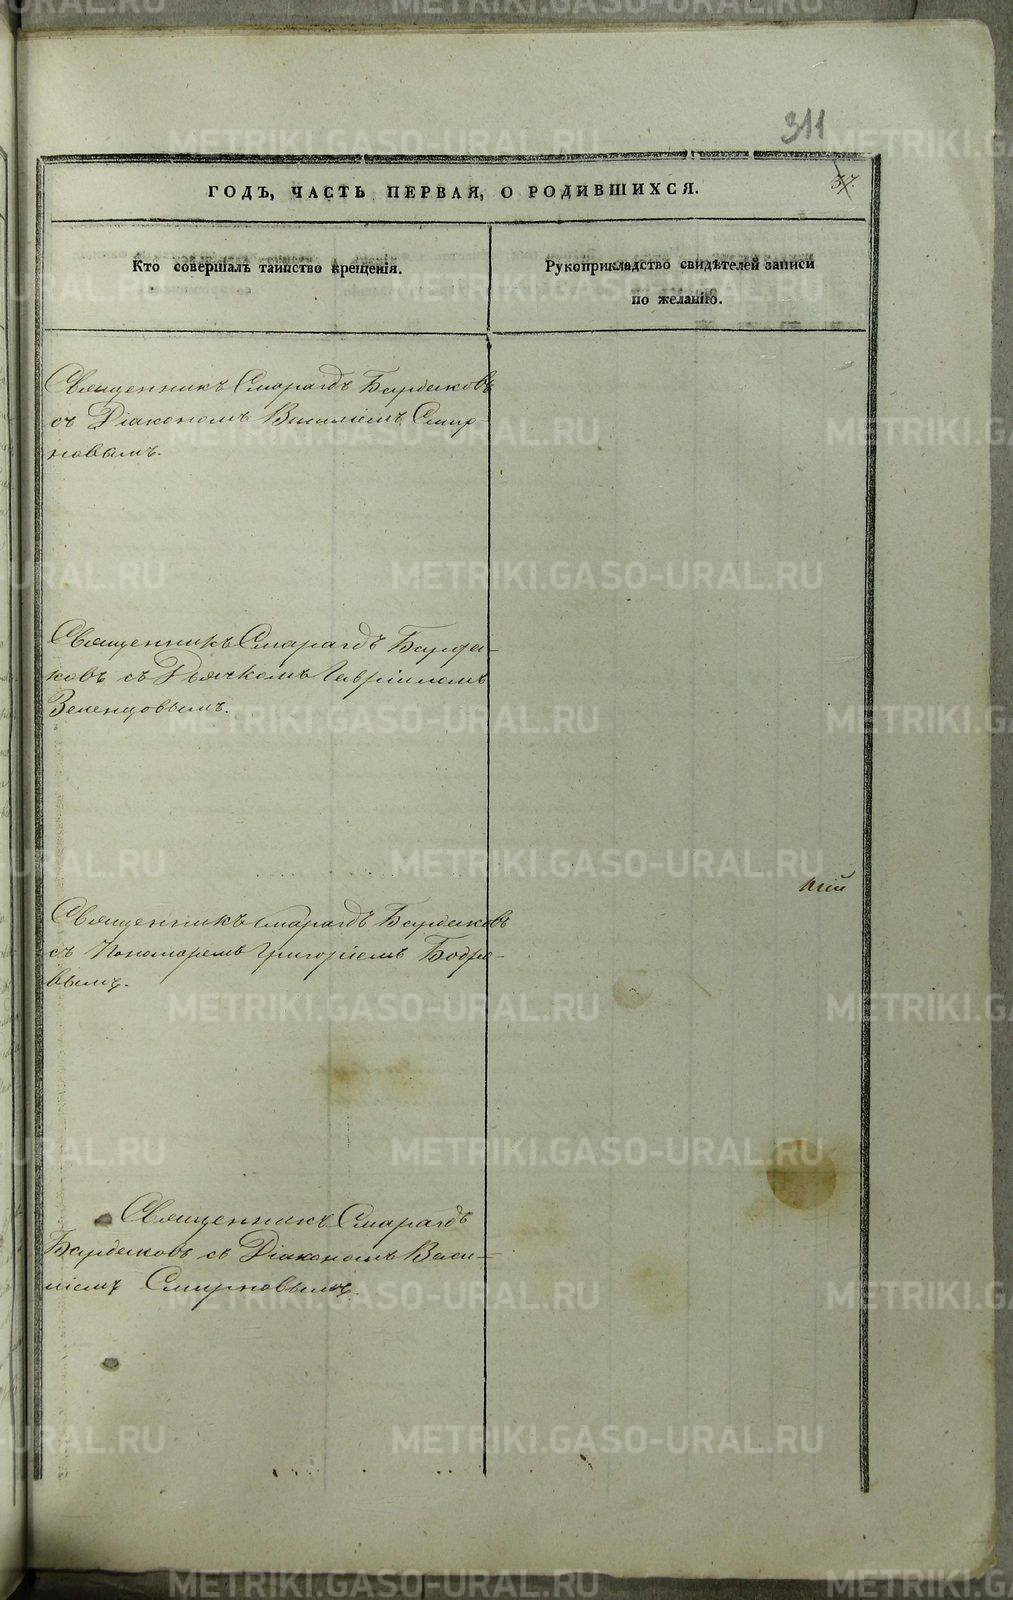 311
37.
ГОДЪ, ЧАСТЬ ПЕРВАЯ, О РОДИВШИХСЯ.
Кто совершалъ таинство крещенія.
Рукоприкладство свидѣтелей записи
по желанію.
Священникъ Смарагдъ Бирдаковъ
съ Діакономъ Василіемъ Смир-
новымъ.
Священникъ Смарагдъ Бирда-
ковъ съ Дьячкомъ Гавріиломъ
Зеленцовымъ.
Священникъ Смарагдъ Бирдаковъ
съ Пономаремъ Григоріемъ Бодре-
вымъ.
Священникъ Смарагдъ
Бирдаковъ съ Діакономъ Васи-
ліемъ Смирновымъ.
METRIKI.GASO-URAL.RU